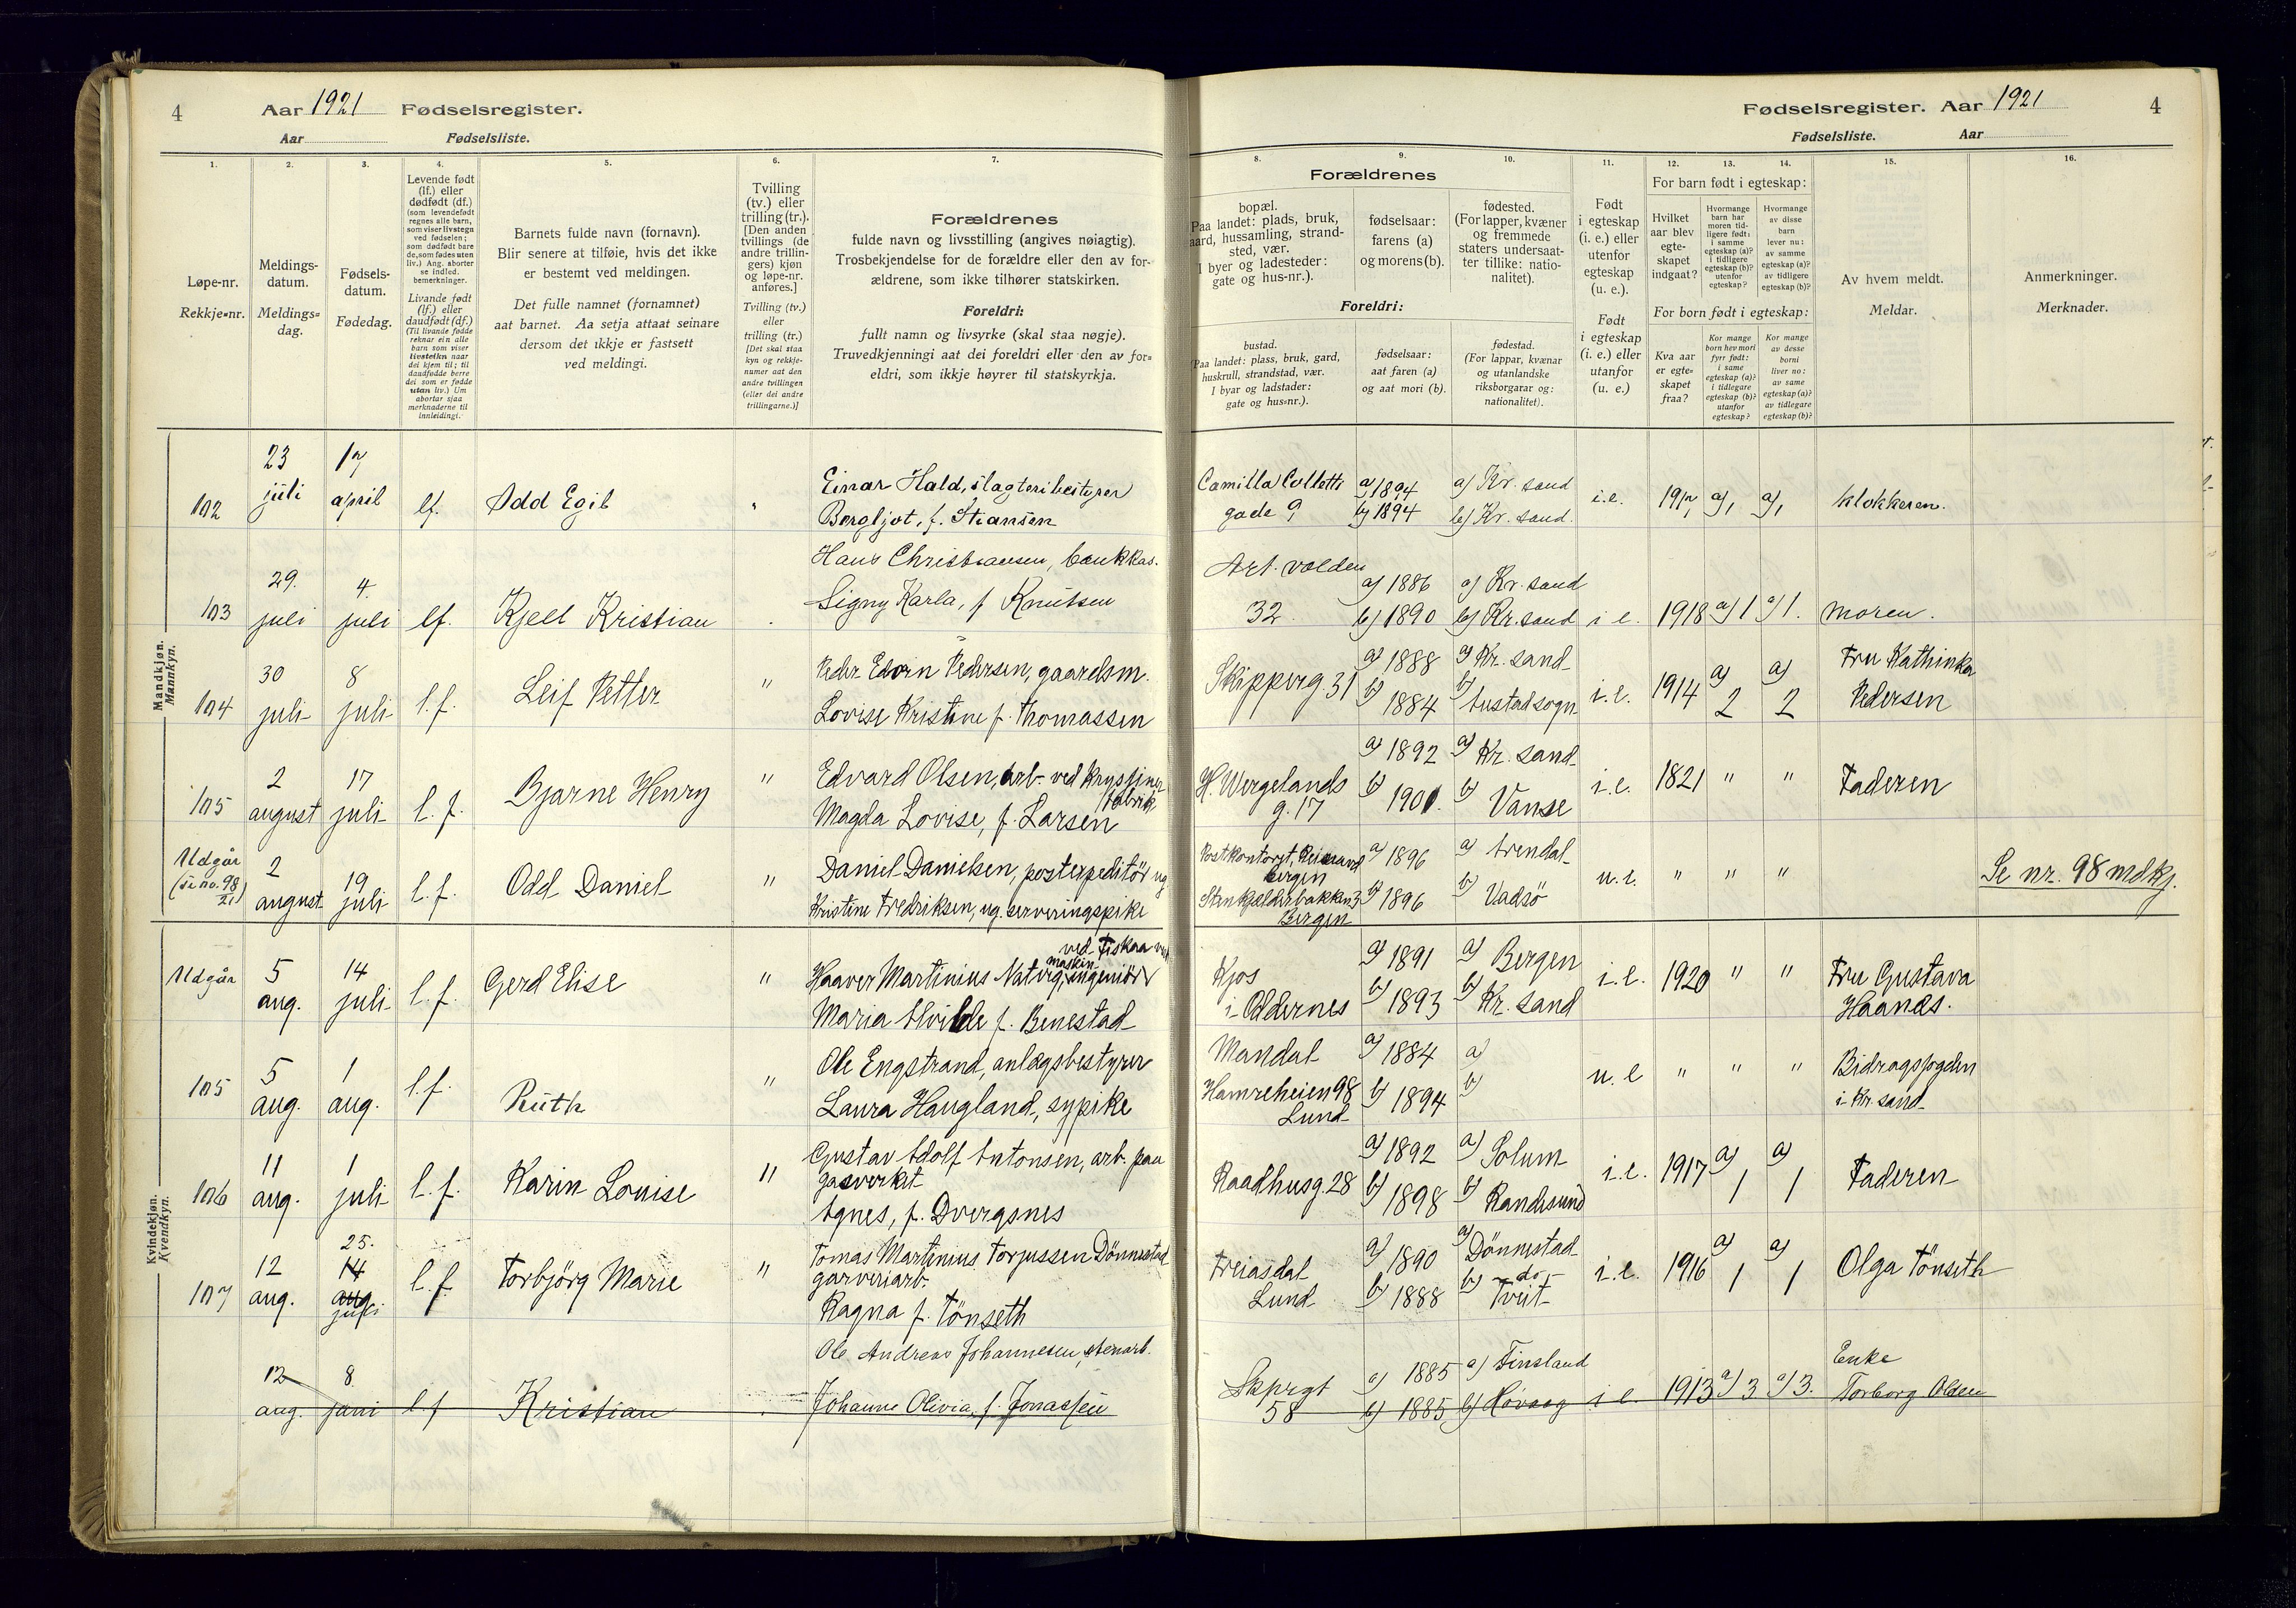 4
Aar 1921 Fødselsregister.
Aar Fødselsliste.
1.
2.
3.
4.
5.
6.
7.
Løpe-nr.
Rekkje=nr.
Meldings-
datum.
Meldings=
dag.
Fødsels-
datum.
Fødedag.
Levende født
(lf.) eller
dødfødt (df.)
(som levendefødt
regnes alle barn,
som viser livstegn
ved fødselen;
som dødfødt bare
de, som fødes uten
liv.) Ang. aborter
se indled.
bemerkninger.
Livande født
(lf.) eller
daudfødt (df.)
(Til livande fødde
reknar ein alle
barn som viser
livsteikn naar
dei kjem til; til
daudfødde berre
dei som er fødde
utan liv.) Um
abortar sjaa
merknaderne til
innleidingi.
Barnets fulde navn (fornavn).
Blir senere at tilføie, hvis det ikke
er bestemt ved meldingen.
Det fulle namnet (fornamnet)
aat barnet. Aa setja attaat seinare
dersom det ikkje er fastsett
ved meldingi.
Tvilling
(tv.) eller
trilling (tr.).
[Den anden
tvillings (de
andre trillin-
gers) kjøn
og løpe-nr.
anføres.]
Tvilling (tv.)
eller
trilling (tr.)
[Det skal staa
kyn og rekkje-
numer aat den
andre tvillingen
(eller dei andre
trillingarne.)]
Forældrenes
fulde navn og livsstilling (angives nøiagtig).
Trosbekjendelse for de forældre eller den av for-
ældrene, som ikke tilhører statskirken.
Foreldri:
fullt namn og livsyrke (skal staa nøgje).
Truvedkjenningi aat dei foreldri eller den av for=
eldri, som ikkje høyrer til statskyrkja.
Mandkjøn.
Mannkyn.
102
23
juli
17
april
lf.
Odd Egil
"
Einar Hald, slagteribestyrer
Bergljot, f. Stiansen
103
29.
juli
4.
juli
lf.
Kjell Kristian
Hans Christiansen, bankkas.
Signy Karla, f Knutsen
104
30
juli
8
juli
l.f.
Leif Petter
"
Peder Edvin Pedersen, gaardsm.
Lovise Kristine f. Thomassen
105
2
august
17
juli
l.f.
Bjarne Henry
"
Edvard Olsen, arb. ved
Magda Lovise, f. Larsen
Udgår
(se no. 98
21)
2
august
19
juli
l.f.
Odd Daniel
"
Daniel Danielsen, postexpeditör og
Kristine Fredriksen, ug. serveringspike
Kvindekjøn.
Kvendkyn.
Udgår
5
aug.
14
juli
l.f.
Gerd Elise
"
ved Fiskaa
maskin
Haaver Martinius Natvig, ingeniör
Maria Alvilde f. Benestad
105
5
aug.
1
aug.
l.f.
Ruth
"
Ole Engstrand, anlægsbestyrer
Laura Haugland, sypike
106
11
aug.
1
juli
l.f.
Karin Louise
"
Gustav Adolf Antonsen, arb. paa
gasverket
Agnes, f. Dvergsnes
107
12
aug.
25.
14
aug.
juli
l.f.
Torbjörg Marie
"
Tomas Martinius Torjussen Dönnestad
garveriarb.
Ragna f. Tönseth
12
aug.
8
juni
l.f
Kristian
Ole Andreas Johannesen, stenarb.
Johanne Olivia, f. Jonassen
Fødselsregister. Aar 1921
4
Fødselsliste. Aar
8.
9.
10.
11.
12.
13.
14.
15.
16.
Forældrenes
bopæl.
Paa landet: plads, bruk,
gaard, hussamling, strand-
sted, vær.
I byer og ladesteder:
gate og hus-nr.).
fødselsaar:
farens (a)
og morens (b).
fødested.
(For lapper, kvæner
og fremmede
staters undersaat-
ter tillike: natio-
nalitet).
Foreldri:
bustad.
Paa landet: plass, bruk, gard,
huskrull, strandstad, vær.
I byar og ladstader:
gate og hus=nr.).
fødselsaar:
aat faren (a)
og aat mori (b).
fødestad.
(For lappar, kvænar
og utanlandske
riksborgarar og:
nationalitet).
Født
i egteskap
(i. e.) eller
utenfor
egteskap
(u. e.).
Født
i egteskap
(i. e.) eller
utanfor
(u. e.)
For barn født i egteskap:
Hvilket
aar blev
egte-
skapet
indgaat?
Hvormange
barn har
moren tid-
ligere født:
i samme
egteskap (a)?
i tidligere
egteskap (b)?
utenfor
egteskap?
Hvormange
av disse
barn
lever nu:
av samme
egteskap (a)?
av tidligere
egteskap (b)?
For born født i egteskap:
Kva aar
er egte=
skapet
fraa?
Kor mange
born hev mori
fyrr født:
i same
egteskap (a)?
i tidlegare
egteskap (b)?
utanfor
egteskap?
Kor mange
av desse
borni
liver no:
av same
egteskap (a)?
av tidlegare
egteskap (b)?
Av hvem meldt.
Meldar.
Anmerkninger.
Merknader.
Camilla Colletts
gade 9
a) 1894
b) 1894
a) Kr. sand
b) Kr. sand.
i.e.
1917
a) 1
a) 1
klokkeren.
Art. volden
32
a) 1886
b) 1890
a) Kr. sand
b) Kr. sand
i e.
1918
a) 1
a) 1.
moren.
Skipperg 31
a) 1888
b) 1884
a) Kr. sand
b) Austad sogn
i.e.
1914
a) 2
a) 2
Fru Kathinka
Pedersen
H. Wergelands
g. 17
a) 1892
b) 1901.
a) Kr. sand
b) Vanse
i.e.
1821
"
"
Faderen
Postkontoret,
Bergen
Stenkjelderbakken 3
Bergen
a) 1896
b) 1896
a) Arendal
b) Vadsö
u.e.
"
"
"
Se nr. 98 mdkj.
Kjos
i Oddernes
a) 1891
b) 1893
a) Bergen
b) Kr. sand
i.e.
1920
"
"
Fru Gustava
Haanes.
Mandal
Hamreheien 98
Lund
a) 1884
b) 1894
a)
b)
u.e
"
"
"
Bidragsfogden
i Kr. sand
Raadhusg. 28
a) 1892
b) 1898
a) Solum
b) Randesund
i.e.
1917
a) 1
a) 1
Faderen
Freiasdal
Lund
a) 1890
b) 1888
a) Dönnestad
b) - do -
Tveit
i.e.
1916
a) 1
a) 1
Olga Tönseth
Skprgt
58
a) 1885
b) 1885
a) Finsland
b) Hövaag
i e.
1913
a) 3
a) 3.
Enke
Torborg Olsen